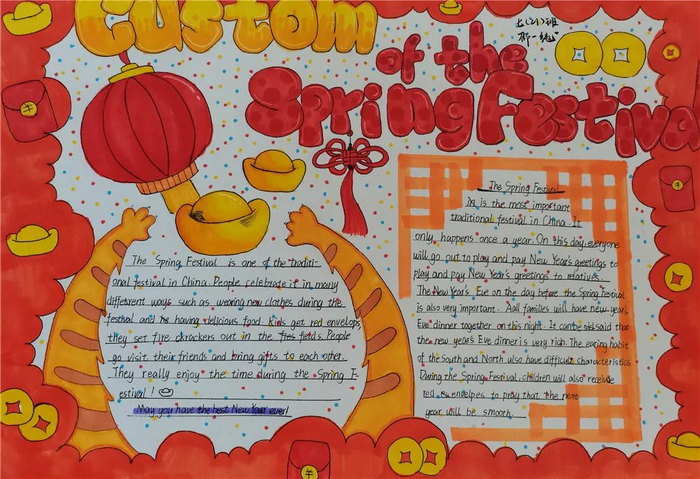 Custom
of the
Spring Festival
The Spring Festival is one of the traditi-
onal festival in China. People celebrate it in many
different ways such as wearing new clothes during the
festival and having delicious food. Kids get red envelops
they set fire crackers out in the fields. People
go visit their friends and bring gifts to each other.
They really enjoy the time during the Spring F-
estival!
May you have the best New Year ever!
The Spring Festival
is the most important
traditional festival in China. It
only happens once a year. On this day, everyone
will go out to play and pay New Year's greetings to
play and pay New Year's greetings to relatives.
The New Year's Eve on the day before the Spring Festival
is also very important. All families will have new year's
Eve dinner together on this night. It can be said that
the new year's Eve dinner is very rich. The eating habit
of the South and North also have difficult characteristics
During the Spring Festival, children will also receive
red envelpes to pray that the next
year will be smooth